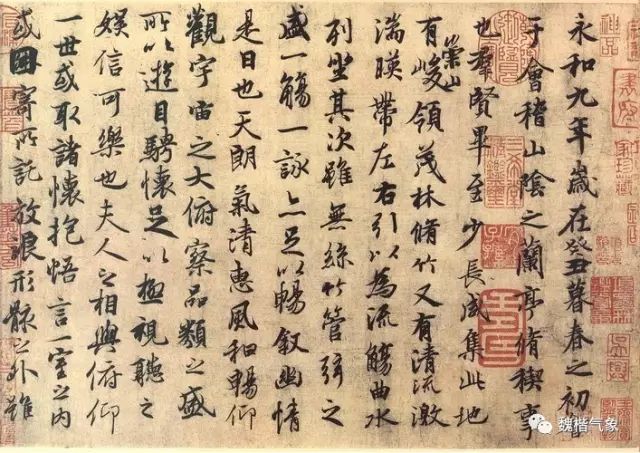 永和九年歲在癸丑暮春之初會
于會稽山陰之蘭亭脩稧事
也群賢畢至少長咸集此地
有崇山峻領茂林脩竹又有清流激
湍暎帶左右引以為流觴曲水
列坐其次雖無絲竹管弦之
盛一觴一詠亦足以暢敘幽情
是日也天朗氣清惠風和暢仰
觀宇宙之大俯察品類之盛
所以遊目騁懷足以極視聽之
娛信可樂也夫人之相與俯仰
一世或取諸懷抱悟言一室之內
或因寄所託放浪形骸之外雖
魏楷气象